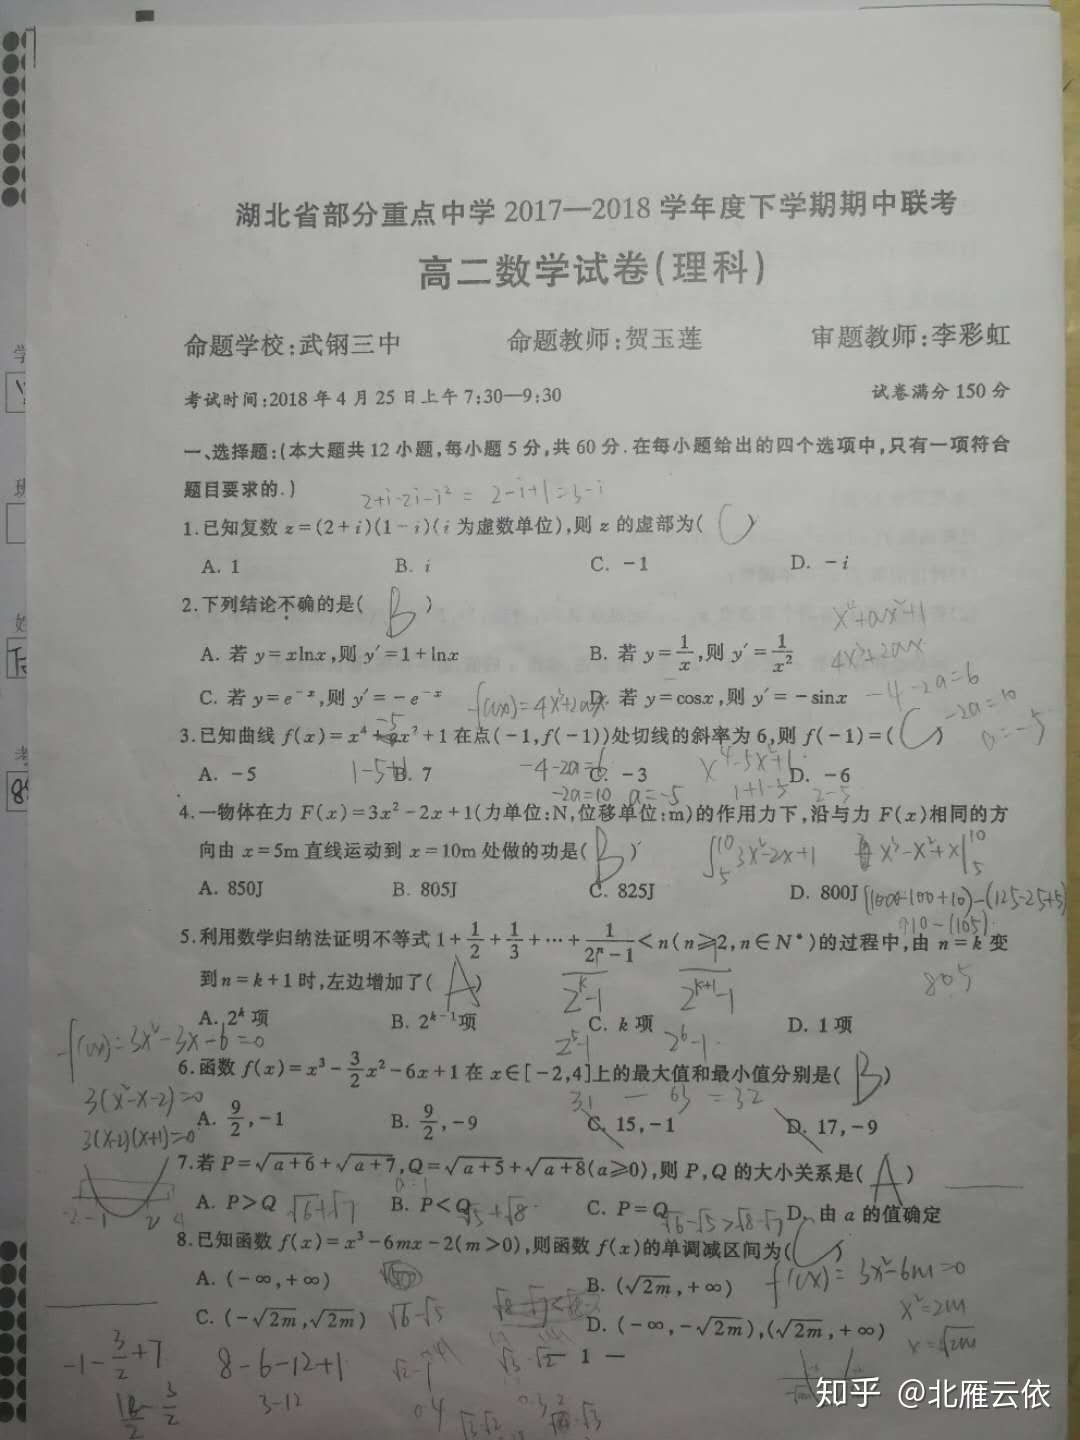 湖北省部分重点中学2017—2018学年度下学期期中联考
高二数学试卷(理科)
命题学校:武钢三中 命题教师:贺玉莲 审题教师:李彩虹
考试时间:2018年4月25日上午7:30—9:30 试卷满分150分
一、选择题:(本大题共12小题,每小题5分,共60分.在每小题给出的四个选项中,只有一项符合
题目要求的.)
2+i-2i-i² = 2-i+1=3-i
1.已知复数z=(2+i)(1-i)(i为虚数单位),则z的虚部为( C )
A. 1 B. i C. -1 D. -i
2.下列结论不确的是( B )
x⁴+ax²+1
A. 若y=xlnx,则y′=1+lnx B. 若y=1/x,则y′=1/x²
4x³+2ax
C. 若y=e⁻ˣ,则y′=-e⁻ˣ D. 若y=cosx,则y′=-sinx
f'(x)=4x³+2ax
-4-2a=6
-2a=10
a=-5
3.已知曲线f(x)=x⁴+ax²+1在点(-1,f(-1))处切线的斜率为6,则f(-1)=( C )
-5
A. -5 B. 7 C. -3 D. -6
1-5+1
-4-2a=6
-2a=10 a=-5
x⁴-5x²+1
1+1-5 2-5
4.一物体在力F(x)=3x²-2x+1(力单位:N,位移单位:m)的作用力下,沿与力F(x)相同的方
向由x=5m直线运动到x=10m处做的功是( B )
∫₅¹⁰3x²-2x+1 x³-x²+x|₅¹⁰
A. 850J B. 805J C. 825J D. 800J
(1000-100+10)-(125-25+5)
910-(105)
805
5.利用数学归纳法证明不等式1+1/2+1/3+…+1/(2ⁿ-1)<n(n≥2,n∈N*)的过程中,由n=k变
到n=k+1时,左边增加了( A )
2ᵏ-1 2ᵏ⁺¹-1
A. 2ᵏ项 B. 2ᵏ⁻¹项 C. k项 D. 1项
2⁵-1 2⁶-1
f'(x)=3x²-3x-6=0
6.函数f(x)=x³-3/2x²-6x+1在x∈[-2,4]上的最大值和最小值分别是( B )
3(x²-x-2)=0
31 - 63 = 32
A. 9/2,-1 B. 9/2,-9 C. 15,-1 D. 17,-9
3(x-2)(x+1)=0
7.若P=√(a+6)+√(a+7),Q=√(a+5)+√(a+8)(a≥0),则P,Q的大小关系是( A )
A. P>Q B. P<Q C. P=Q D. 由a的值确定
√6+√7 √5+√8 √6-√5>√8-√7
-2 -1 2 4
8.已知函数f(x)=x³-6mx-2(m>0),则函数f(x)的单调减区间为( C )
A. (-∞,+∞) B. (√2m,+∞)
f'(x)=3x²-6m=0
C. (-√2m,√2m) D. (-∞,-√2m),(√2m,+∞)
x²=2m
x=√2m
√6-√5
-1-3/2+7
8-6-12+1
3-12
— 1 —
0.4
学
班
姓
考
知乎 @北雁云依